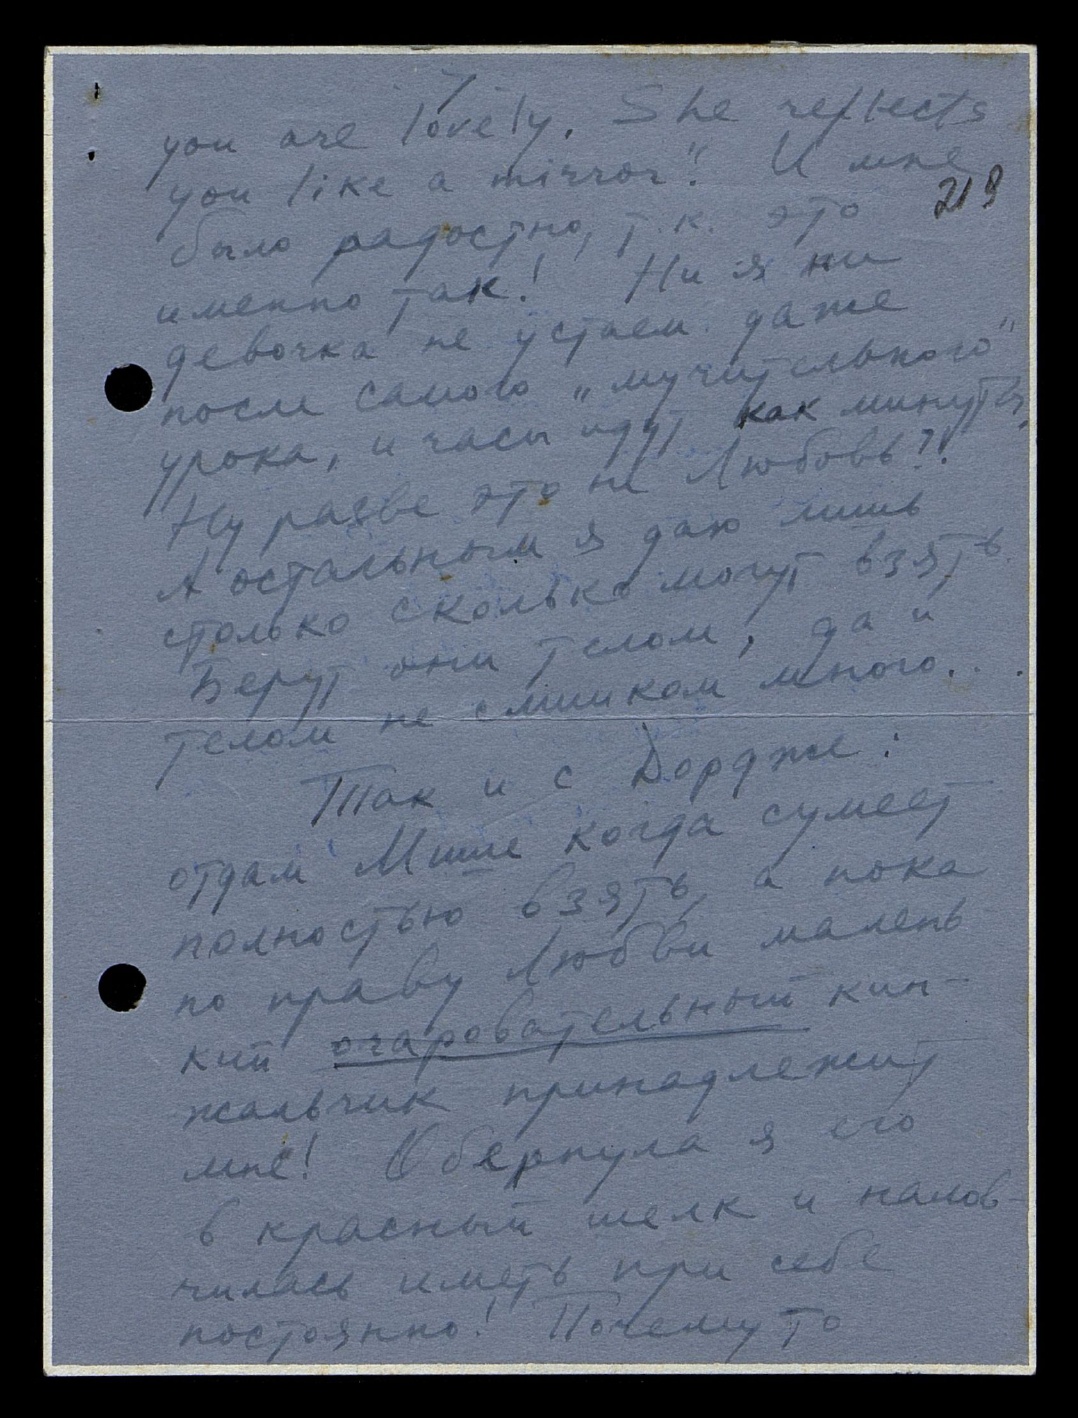 7
you are lovely. She reflects
you like a mirror". И мне
219
было радостно, т.к. это
именно так! Ни я ни
девочка не устаем даже
после самого „мучительного"
урока, и часы идут как минуты.
Ну разве это не Любовь?!
А остальным я даю лишь
столько сколько могут взять.
Берут они телом, да и
телом не слишком много...
Так и с Дордже:
отдам Мише когда сумеет
полностью взять, а пока
по праву Любви малень-
кий очаровательный кин-
жальчик принадлежит
мне! Обернула я его
в красный шелк и налов-
чилась иметь при себе
постоянно! Почему то